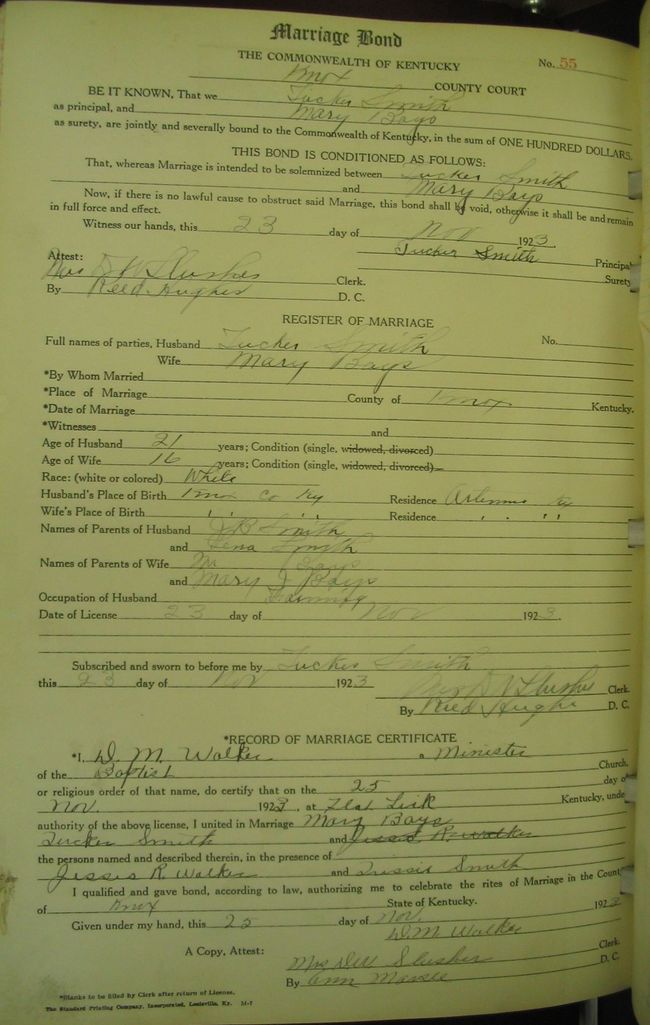 Marriage Bond
THE COMMONWEALTH OF KENTUCKY
No. 55
Knox COUNTY COURT
BE IT KNOWN, That we Tucker Smith
as principal, and Mary Bays
as surety, are jointly and severally bound to the Commonwealth of Kentucky, in the sum of ONE HUNDRED DOLLARS.
THIS BOND IS CONDITIONED AS FOLLOWS:
That, whereas Marriage is intended to be solemnized between Tucker Smith
and Mary Bays
Now, if there is no lawful cause to obstruct said Marriage, this bond shall be void, otherwise it shall be and remain
in full force and effect.
Witness our hands, this 23 day of Nov 1923.
Tucker Smith Principal
Attest:
Mrs D W Slusher Clerk. Surety
By Reed Hughes D. C.
REGISTER OF MARRIAGE
Full names of parties, Husband Tucker Smith No.
Wife Mary Bays
*By Whom Married
*Place of Marriage County of Knox Kentucky.
*Date of Marriage
*Witnesses and
Age of Husband 21 years; Condition (single, widowed, divorced)
Age of Wife 16 years; Condition (single, widowed, divorced)
Race: (white or colored) White
Husband's Place of Birth Knox Co Ky Residence Artemus Ky
Wife's Place of Birth " " " Residence " " "
Names of Parents of Husband J B Smith
and Lena Smith
Names of Parents of Wife Bays
and Mary J Bays
Occupation of Husband Farming
Date of License 23 day of Nov 1923.
Subscribed and sworn to before me by Tucker Smith
this 23 day of Nov 1923
Mrs D W Slusher Clerk.
By Reed Hughes D. C.
*RECORD OF MARRIAGE CERTIFICATE
*I, D. M. Walker a Minister
of the Baptist Church,
or religious order of that name, do certify that on the 25 day of
Nov. 1923, at Flat Lick Kentucky, under
authority of the above license, I united in Marriage Mary Bays
Tucker Smith and Jessis R Walker
the persons named and described therein, in the presence of
Jessis R. Walker and Smith
I qualified and gave bond, according to law, authorizing me to celebrate the rites of Marriage in the County
of Knox State of Kentucky.
Given under my hand, this 25 day of Nov. 1923
D.M. Walker
A Copy, Attest: Mrs D W Slusher Clerk.
By Ann D. C.
*Blanks to be filled by Clerk after return of License.
The Standard Printing Company, Incorporated, Louisville, Ky.